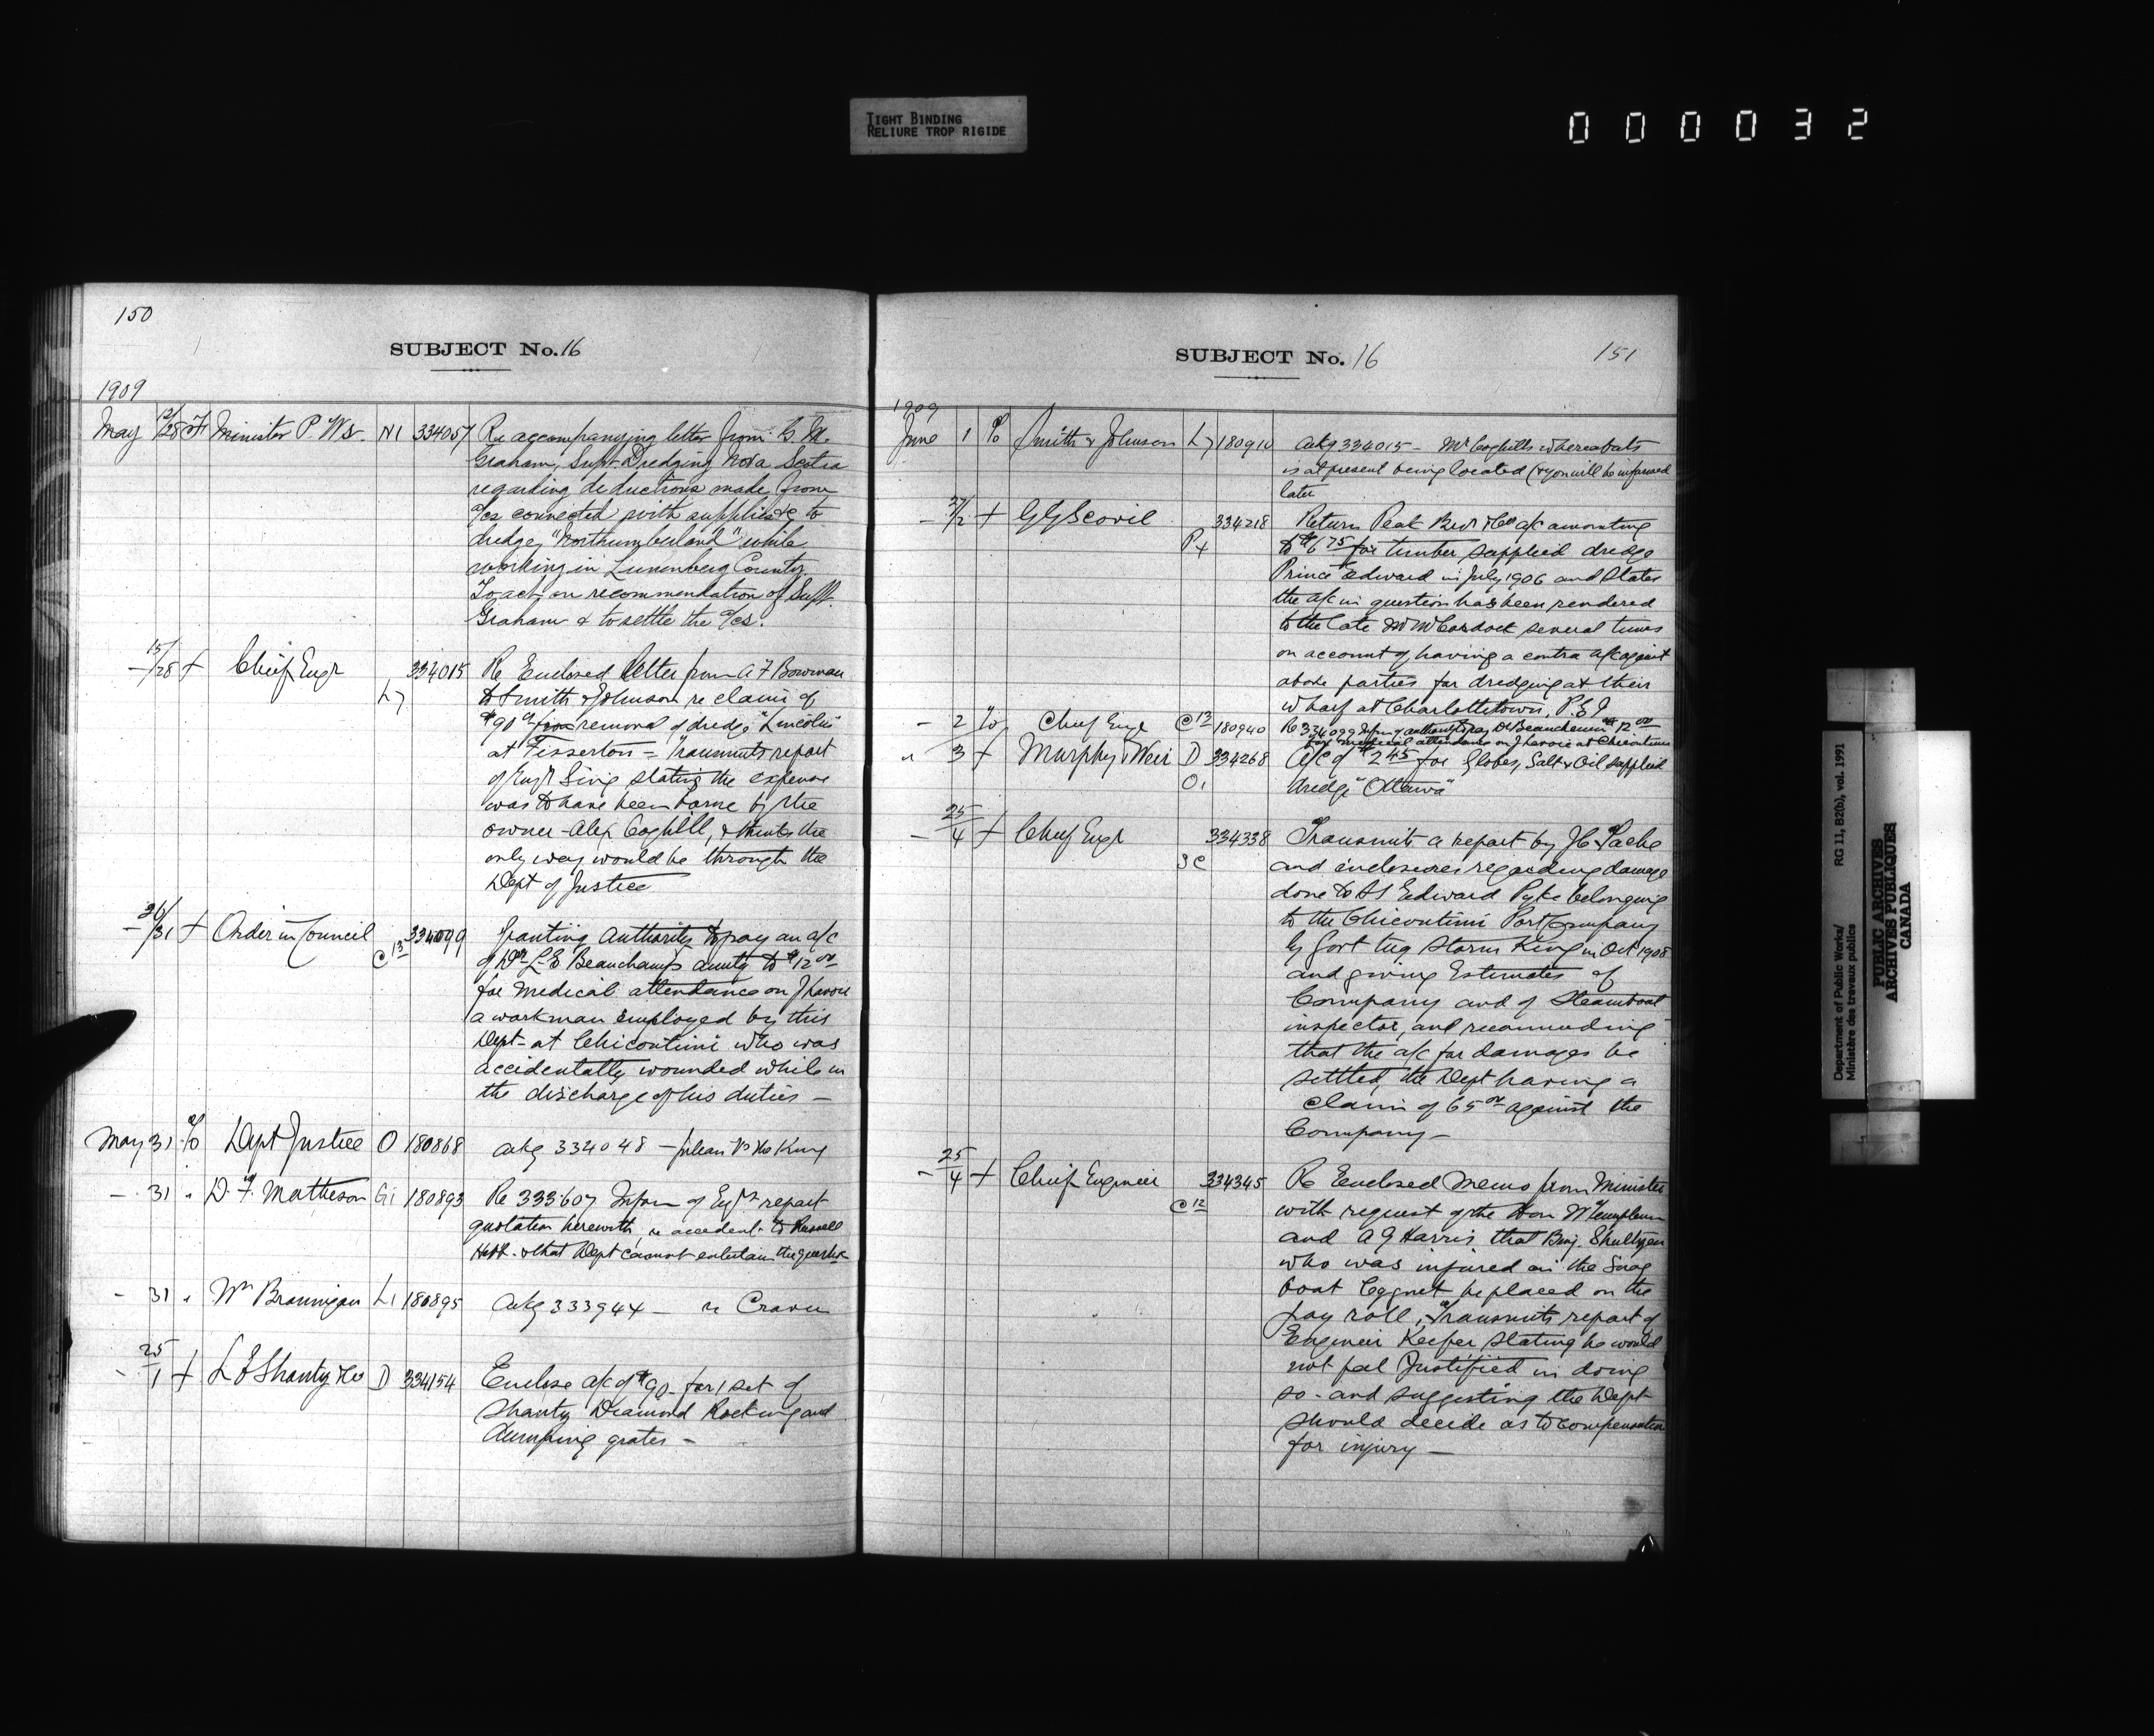 TIGHT BINDING
RELIURE TROP RIGIDE
000032
150
SUBJECT No. 16
1909
May 12/28 Minister P. Ws. N1 334057 Re accompanying letter from G. M.
Graham, Supt Dredging Nova Scotia
regarding deductions made from
a/cs connected with supplies &c to
dredge "Northumberland" while
working in Lunenberg County.
To act on recommendation of Supt.
Graham & to settle the a/cs.
— 15/28 + Chief Engr L7 334015 Re Enclosed letter from A F Bowman
to Smith & Johnson re claim of
$90 for removal of dredge "Lincoln"
at Fesserton — Transmits report
of Engr Sing stating the expense
was to have been borne by the
owner - Alex Coghill, & thinks the
only way would be through the
Dept of Justice
— 26/31 + Order in Council C 13 334099 Granting Authority to pay an a/c
of Dr L. E Beauchamp amtg to $12 00
for medical attendance on J Lavoie
a workman employed by this
Dept- at Chicoutimi who was
accidentally wounded while in
the discharge of his duties —
May 31 % Dept Justice O 180868 Ackg 334048 — Julien vs the King
— 31 " D. F. Matheson Gi 180893 Re 333607 Infm of Engrs report
quotation herewith, re accident to Russell
Hett. & that Dept cannot entertain the question
- 31 " Wm Brannigan L1 180895 Ackg 333944 — re Craven
- 25/1 + L E Shanty &Co D 334154 Enclose a/c of $90- for 1 set of
Shanty Diamond Rocking and
Dumping grates —
SUBJECT No. 16
151
1909
June 1 % Smith & Johnson L7 180910 Ackg 334015 — Mr Coghills whereabouts
is at present being located (& you will be informed
later
— 27/2 + G G Scovil P4 334218 Return Peak Bros & Co a/c amounting
to $6 75 for timber supplied dredge
Prince Edward in July 1906 and states
the a/c in question has been rendered
to the late several times
on account of having a contra a/c against
above parties for dredging at their
wharf at Charlottetown, P.E.I
— 2 % Chief Engr C 12 180940 Re 334099 Infm of authority to pay Dr Beauchemin $12 00
for medical attendance on J Lavoie at Chicoutimi
" 3 + Murphy & Weir D O1 334268 A/c of $2 45 for Globes, Salt & Oil supplied
dredge "Ottawa"
— 25/4 + Chief Engr 334338 Transmits a report by J C Tache
and enclosures regarding damage
done to SS Edward Pyke belonging
to the Chicoutimi Port Company
by Govt tug Storm King in Oct 1908
and giving Estimates of
Company and of Steamboat
inspector, and recommending
that the a/c for damages be
settled, the Dept having a
claim of 65 00 against the
Company —
— 25/4 + Chief Engineer C 12 334345 Re Enclosed memo from Minister
with request of the Hon W Templeman
and A G Harris that Benj.
who was injured on the Snag
boat be placed on the
pay roll, Transmits report of
Engineer Keefer stating he would
not feel Justified in doing
so - and suggesting the Dept
should decide as to compensation
for injury —
Department of Public Works/ RG 11, B2(b), vol. 1991
Ministère des travaux publics
PUBLIC ARCHIVES
ARCHIVES PUBLIQUES
CANADA